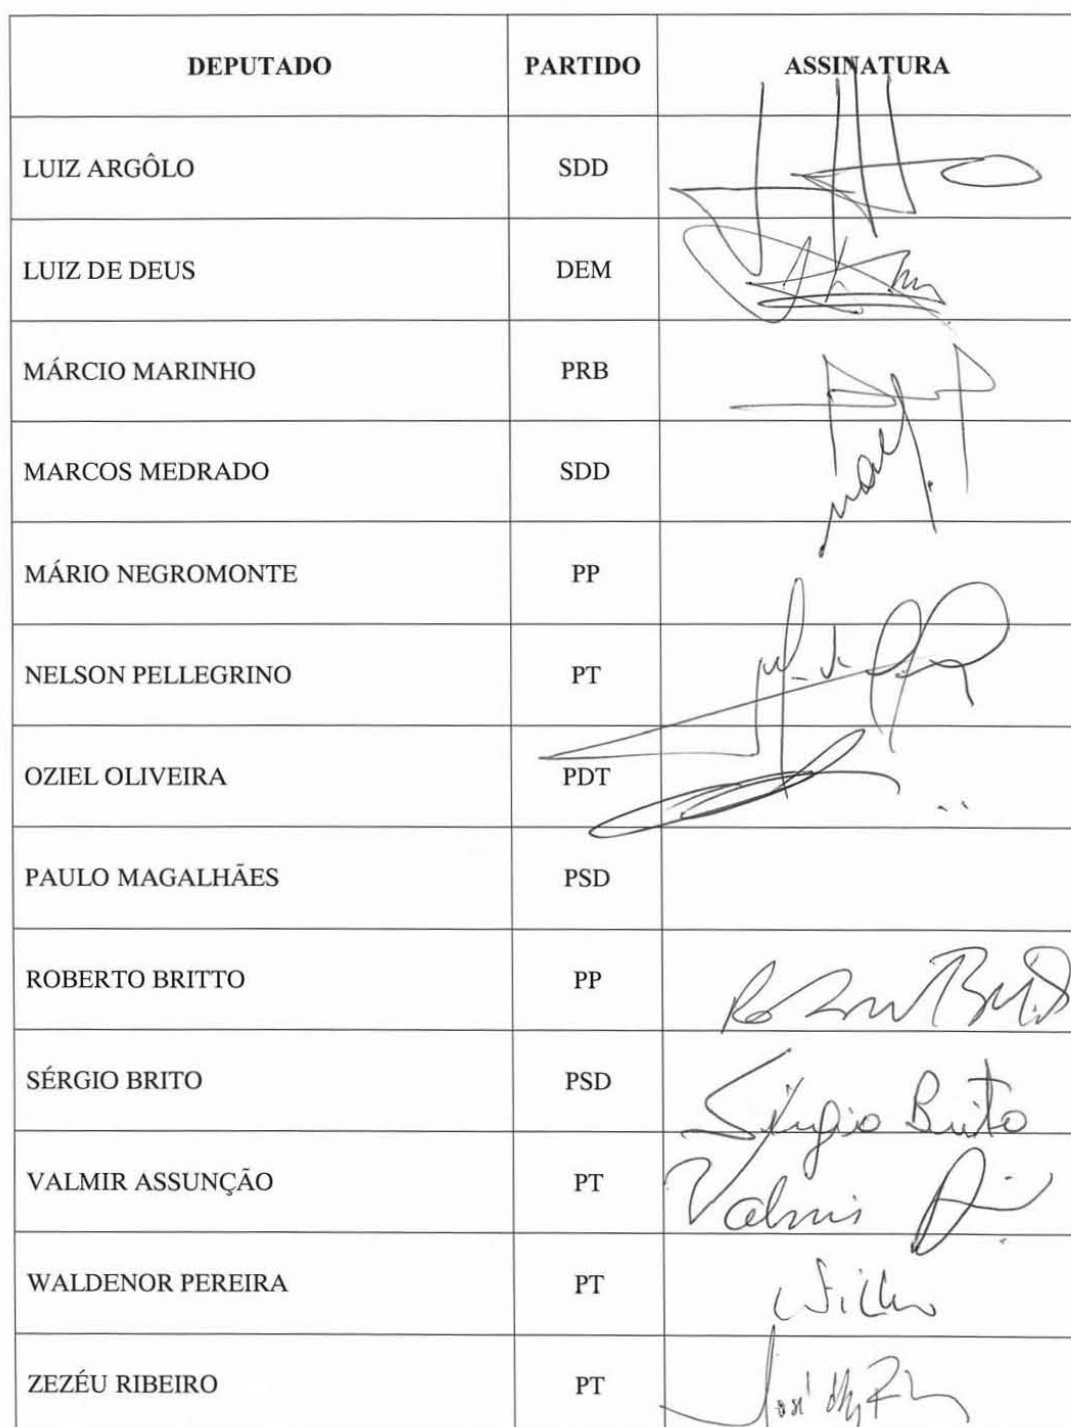 DEPUTADO PARTIDO ASSINATURA
LUIZ ARGÔLO SDD
LUIZ DE DEUS DEM
MÁRCIO MARINHO PRB
MARCOS MEDRADO SDD
MÁRIO NEGROMONTE PP
NELSON PELLEGRINO PT
OZIEL OLIVEIRA PDT
PAULO MAGALHÃES PSD
ROBERTO BRITTO PP
SÉRGIO BRITO PSD Sérgio Brito
VALMIR ASSUNÇÃO PT Valmir
WALDENOR PEREIRA PT
ZEZÉU RIBEIRO PT José